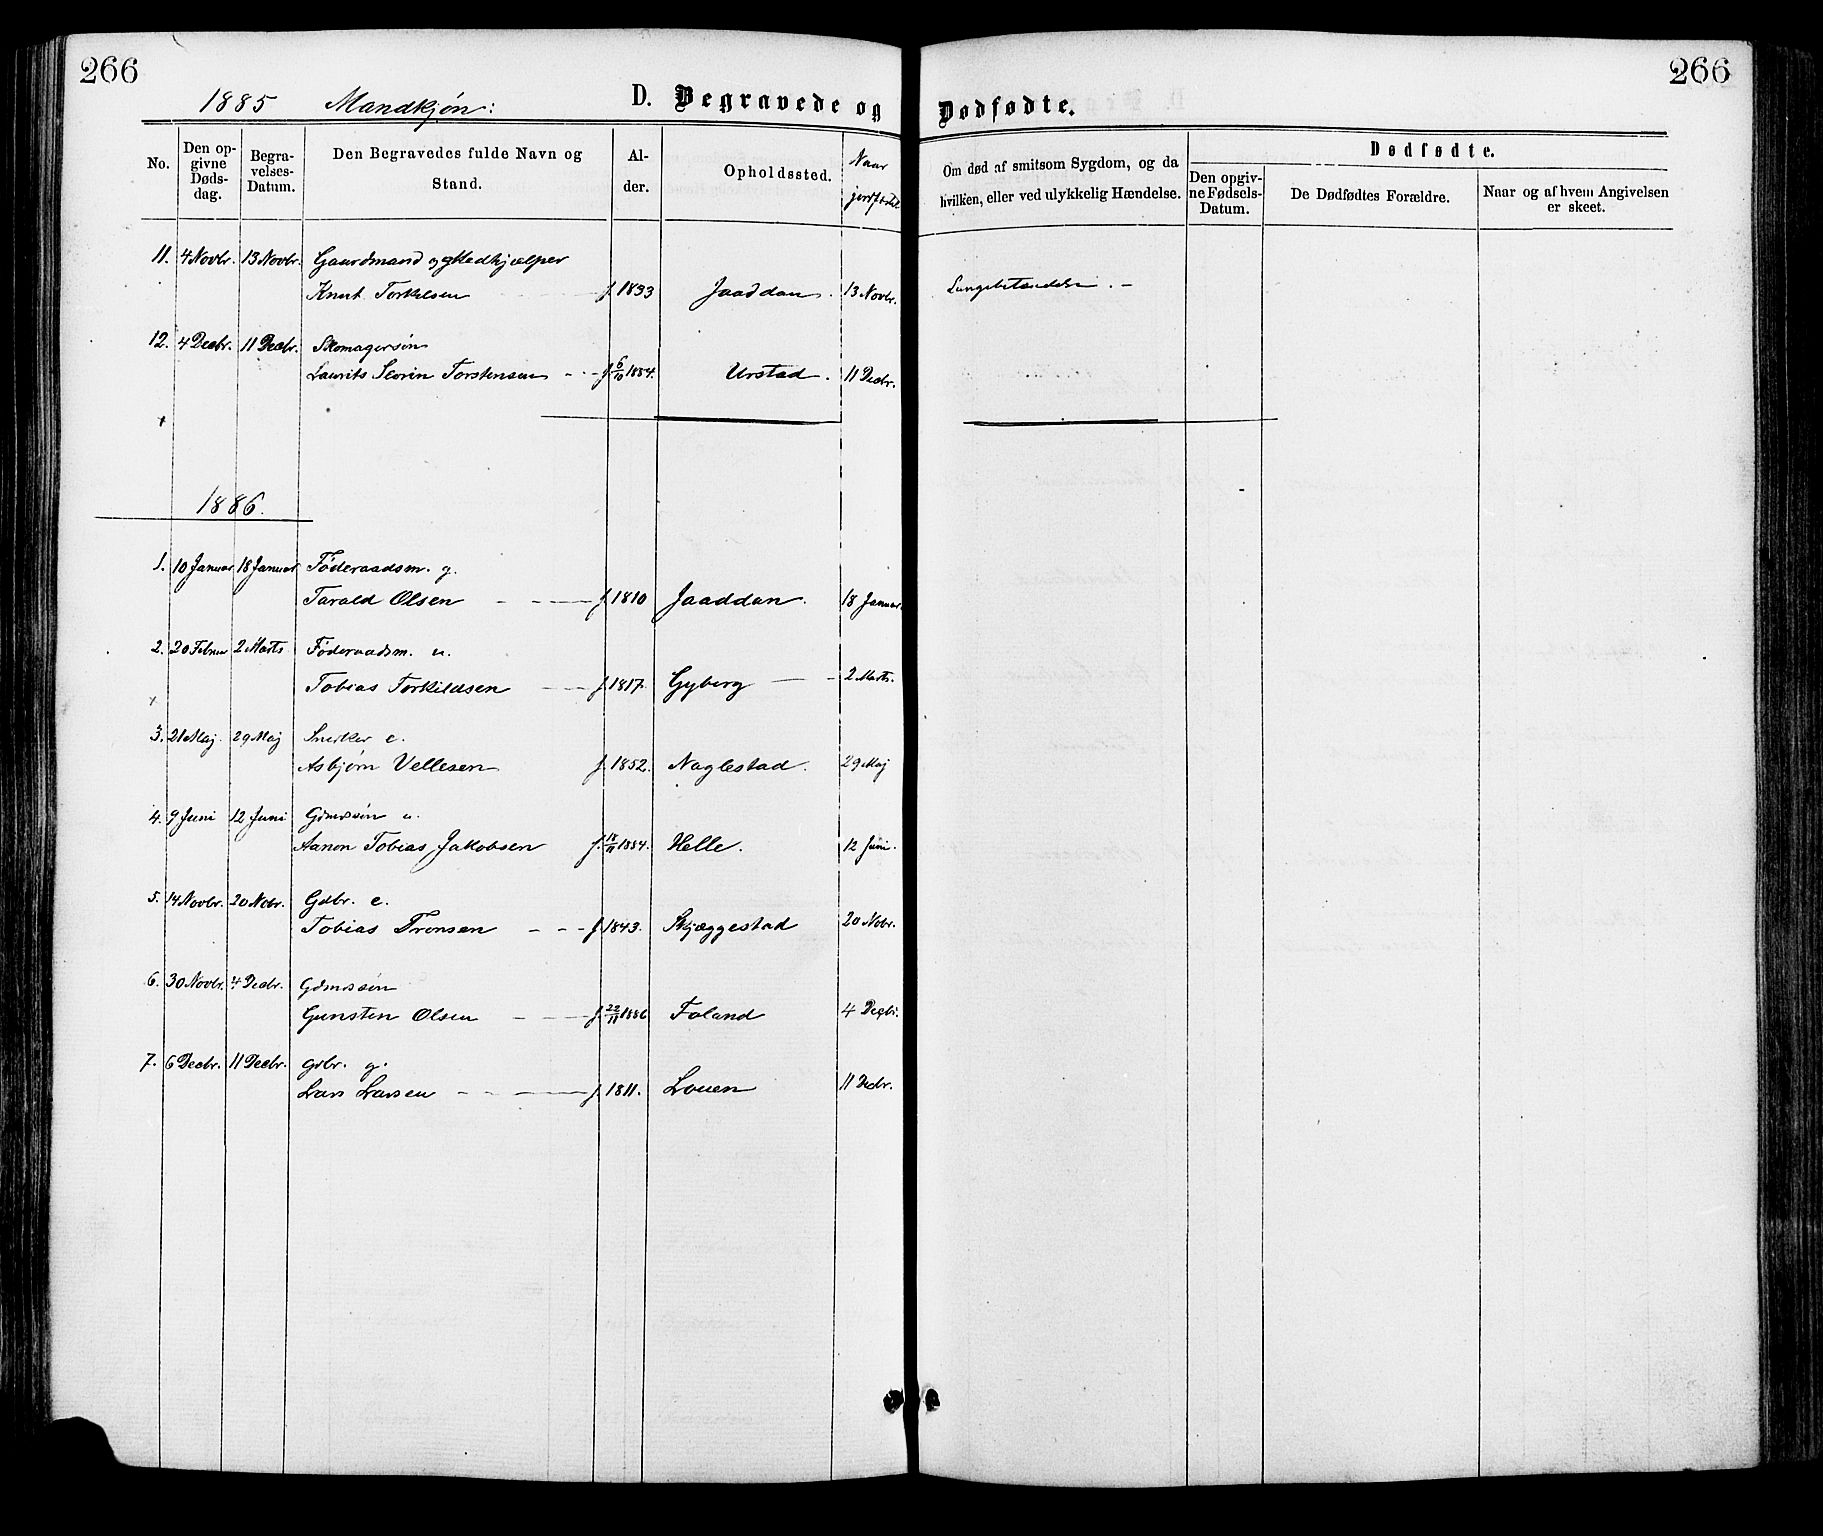 266
266
1885 Mandkjøn:
D. Begravede og Dødfødte.
No.
Den opgivne Dødsdag.
Begravelses-Datum.
Den Begravedes fulde Navn og Stand.
Alder.
Opholdssted.
Naar jordfæstet
Om død af smitsom Sygdom, og da hvilken, eller ved ulykkelig Hændelse.
Dødfødte.
Den opgivne Fødsels-Datum.
De Dødfødtes Forældre.
Naar og af hvem Angivelsen er skeet.
11. 4 Novbr. 13 Novbr. Gaardmand og Medhjælper
Knut Torkelsen f. 1833 Jaaddan. 13 Novbr. Lungebetændelse. -
12. 4 Decbr. 11 Decbr. Skomagersøn
Laurits Severin Torstensen - - - f. 6/10 1884. Urstad. 11 Decbr.
1886.
1. 10 Januar 18 Januar Føderaadsm. g.
Tarald Olsen - - — f. 1810 Jaaddan. 18 Januar
2. 20 Februar 2 Marts Føderaadsm. u.
Tobias Torkildsen — - f. 1817. Gyberg — - 2 Marts.
3. 21 Maj. 29 Maj Snedker e.
Asbjørn Vellesen f. 1852. Naglestad. 29 Maj
4. 9 Juni 12 Juni Gdmssøn u.
Aanon Tobias Jakobsen f. 1884. Helle. 12 Juni.
5. 14 Novbr. 20 Nobr. Gdbr. e.
Tobias Tronsen - - - f. 1843. Skjæggestad 20 Nobr.
6. 30 Novbr. 4 Decbr. Gdmssøn
Gunsten Olsen — - — f. 22/11 1886 Foland 4 Decbr.
7. 6 Decbr. 11 Decbr. Gdbr. g.
Lars Larsen - - — f. 1811. Louen 11 Decbr.